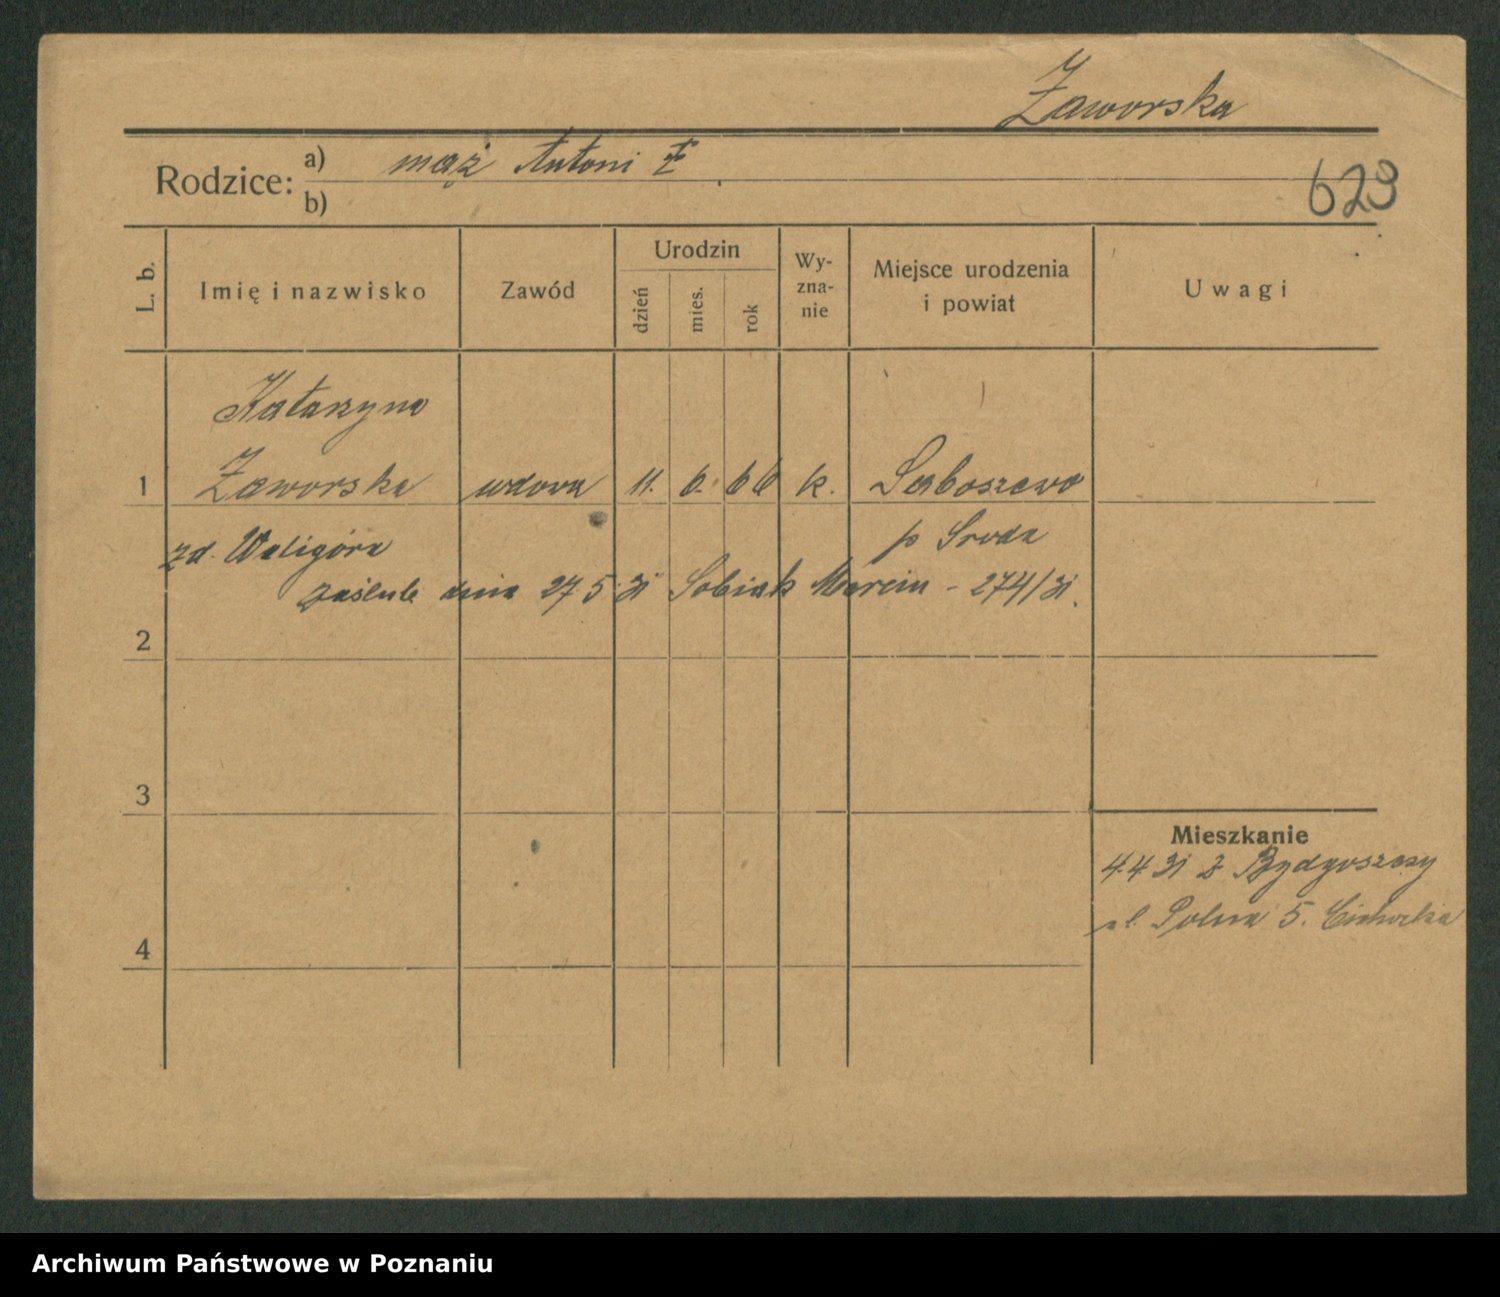 Zaworska
Rodzice: a) mąż Antoni Z
b)
629
L. b.
Imię i nazwisko
Zawód
Urodzin
dzień
mies.
rok
Wy-
zna-
nie
Miejsce urodzenia
i powiat
Uwagi
Katarzyna
1 Zaworska wdowa 11. 6. 66 k.
zd. Waligóra p Sroda
zaślub. dnia 27 5 31 Sobiak Marcin - 274/31.
2
3
Mieszkanie
4.4 31 z Bydgoszczy
ul. Polna 5.
4
Archiwum Państwowe w Poznaniu